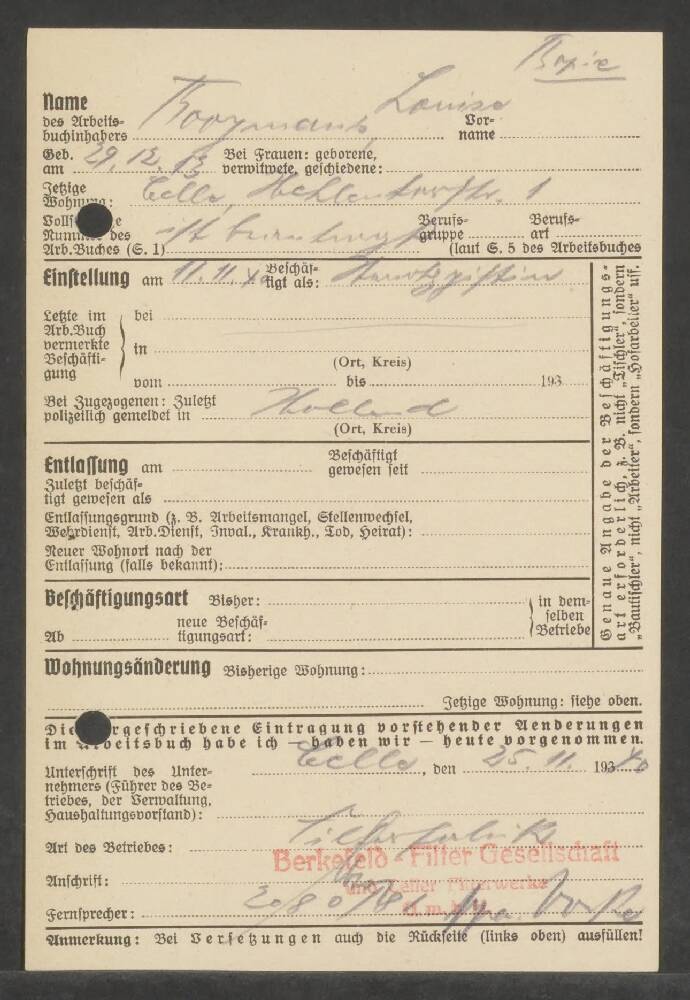 Name
des Arbeits-
buchinhabers
Louise
Vor-
name
Geb. 29. 12. 13 Bei Frauen: geborene,
am verwitwete, geschiedene:
Jetzige Celle, 1
Wohnung:
Voll
Nummer des ist beantragt Berufs- gruppe Berufs- art
Arb.Buches (S. 1) (laut S. 5 des Arbeitsbuches
Einstellung am 11. 11. 40 Beschäf- tigt als:
Letzte im bei
Arb.Buch
vermerkte in
Beschäfti- (Ort, Kreis)
gung vom bis 193
Bei Zugezogenen: Zuletzt
polizeilich gemeldet in Holland
(Ort, Kreis)
Entlassung am Beschäftigt gewesen seit
Zuletzt beschäf-
tigt gewesen als
Entlassungsgrund (z. B. Arbeitsmangel, Stellenwechsel,
Wehrdienst, Arb.Dienst, Inval., Krankh., Tod, Heirat):
Neuer Wohnort nach der
Entlassung (falls bekannt):
Genaue Angabe der Beschäftigungs-
art erforderlich, z. B. nicht „Tischler“, sondern
„Bautischler“, nicht „Arbeiter“, sondern „Hofarbeiter“ usf.
Beschäftigungsart Bisher: in dem-
selben
Ab neue Beschäf- tigungsart: Betriebe
Wohnungsänderung Bisherige Wohnung:
Jetzige Wohnung: siehe oben.
Die vorgeschriebene Eintragung vorstehender Aenderungen
im Arbeitsbuch habe ich — haben wir — heute vorgenommen.
Celle, den 25. 11. 1940
Unterschrift des Unter-
nehmers (Führer des Be-
triebes, der Verwaltung,
Haushaltungsvorstand):
Art des Betriebes:
Berkefeld-Filter Gesellschaft
Anschrift: und Celler Filterwerke
G. m. b. H.
Fernsprecher:
Anmerkung: Bei Versetzungen auch die Rückseite (links oben) ausfüllen!